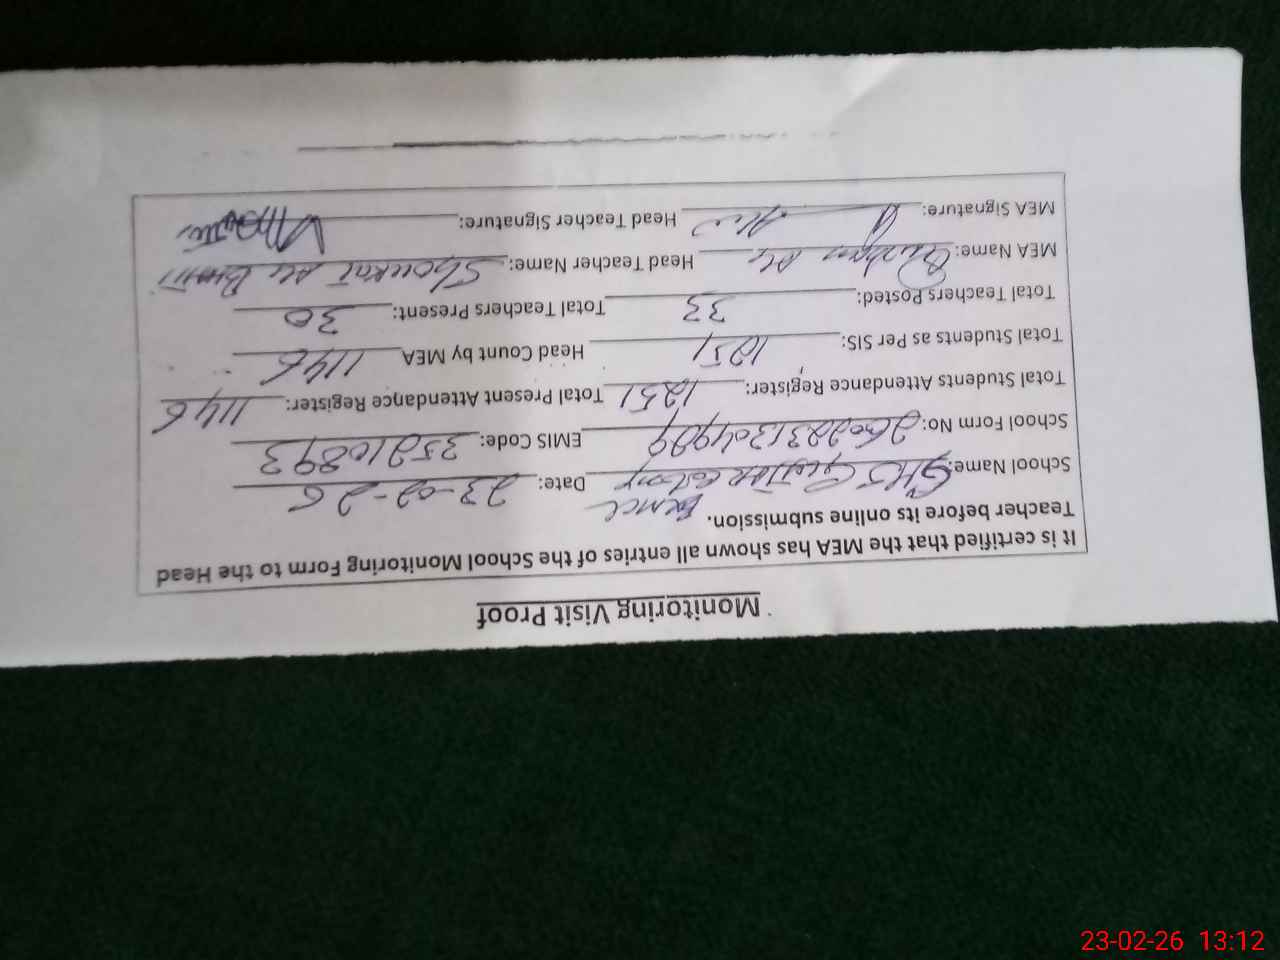 Monitoring Visit Proof
It is certified that the MEA has shown all entries of the School Monitoring Form to the Head
Teacher before its online submission.
School Name: GHS Colony Date: 23-02-26
School Form No: EMIS Code: 35210893
Total Students Attendance Register: 1251 Total Present Attendance Register: 1146
Total Students as Per SIS: 1251 Head Count by MEA 1146
Total Teachers Posted: 33 Total Teachers Present: 30
MEA Name: Ali Head Teacher Name: Shoukat Ali
MEA Signature: Head Teacher Signature:
23-02-26 13:12